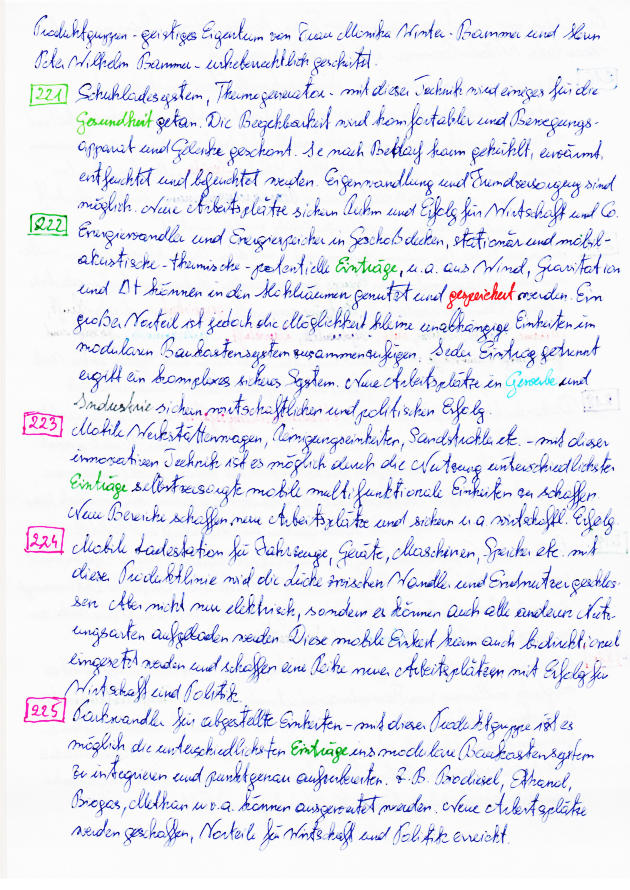 Produktgruppen - geistiges Eigentum von Frau Monika Winter-Bammer und Herrn
Peter Wilhelm Bammer - urheberrechtlich geschützt.
221 Schuhladesystem, Thermogenerator - mit dieser Technik wird einiges für die
Gesundheit getan. Die Begehbarkeit wird komfortabler und Bewegungs-
apparat und Gelenke geschont. Je nach Bedarf kann gekühlt, erwärmt,
entfeuchtet und befeuchtet werden. Eigenwandlung und Fremdversorgung sind
möglich. Neue Arbeitsplätze sichern Ruhm und Erfolg für Wirtschaft und Co.
222 Energiewandler und Energiespeicher in Geschoßdecken, stationär und mobil-
akustische - thermische - potentielle Einträge, u.a. aus Wind, Gravitation
und Δt können in den Hohlräumen genutzt und gespeichert werden. Ein
großer Vorteil ist jedoch die Möglichkeit kleine unabhängige Einheiten im
modularen Baukastensystem zusammenzufügen. Jeder Eintrag getrennt
ergibt ein komplexes sicheres System. Neue Arbeitsplätze in Gewerbe und
Industrie sichern wirtschaftlichen und politischen Erfolg.
223 Mobile Werkstättenwagen, Reinigungseinheiten, Sandstrahler etc. - mit dieser
innovativen Technik ist es möglich durch die Nutzung unterschiedlichster
Einträge selbstversorgte mobile multifunktionale Einheiten zu schaffen.
Neue Bereiche schaffen neue Arbeitsplätze und sichern u.a. wirtschaftl. Erfolg
224 Mobile Ladestation für Fahrzeuge, Geräte, Maschinen, Speicher etc. mit
dieser Produktlinie wird die Lücke zwischen Wandler und Endnutzer geschlos-
sen. Aber nicht nur elektrisch, sondern es können auch alle anderen Nutz-
ungsarten aufgeladen werden. Diese mobile Einheit kann auch bidirektional
eingesetzt werden und schaffen eine Reihe neuer Arbeitsplätzen mit Erfolg für
Wirtschaft und Politik.
225 Parkwandler für abgestellte Einheiten - mit dieser Produktgruppe ist es
möglich die unterschiedlichsten Einträge ins modulare Baukastensystem
zu integrieren und punktgenau aufzubereiten. Z.B. Biodiesel, Ethanol,
Biogas, Methan u.v.a. können ausgewertet werden. Neue Arbeitsplätze
werden geschaffen, Vorteile für Wirtschaft und Politik erreicht.